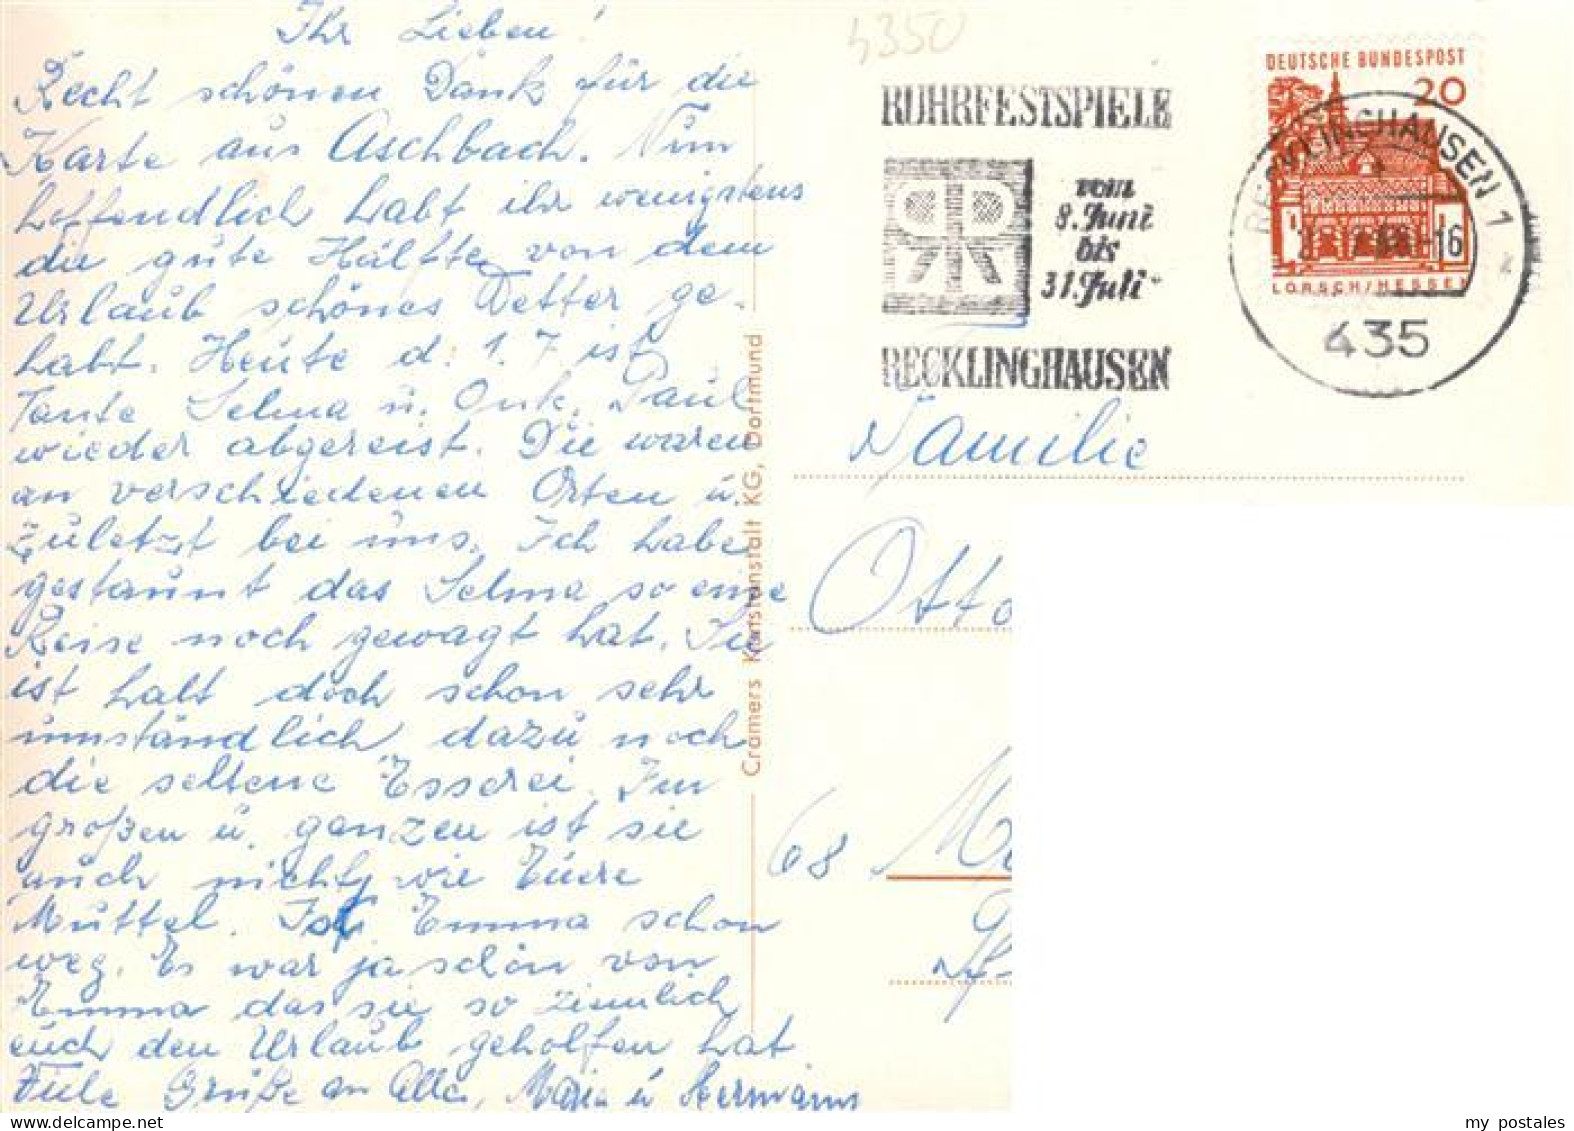 Ihr Lieben!
Recht schönen Dank für die
Karte aus Aschbach. Nun
hoffendlich habt ihr wenigstens
die gute Hälfte von dem
Urlaub schönes Wetter ge-
habt. Heute d. 1.7 ist
Tante Selma u. Onk. Paul
wieder abgereist. Die waren
an verschiedenen Orten u.
zuletzt bei uns. Ich habe
gestaunt das Selma so eine
Reise noch gewagt hat. Sie
ist halt doch schon sehr
umständlich, dazu noch
die seltene Esserei. Im
großen u. ganzen ist sie
auch nicht wie Euere
Muttel. Ist Emma schon
weg. Es war ja schön von
Emma das sie so ziemlich
euch den Urlaub geholfen hat
Viele Grüße an alle, Maria u Hermann
Cramers Kunstanstalt KG, Dortmund
4350
RUHRFESTSPIELE
vom
8. Juni
bis
31. Juli
RECKLINGHAUSEN
DEUTSCHE BUNDESPOST
20
LORSCH/HESSEN
RECKLINGHAUSEN 1
-16
435
Familie
Otto
68
my postales